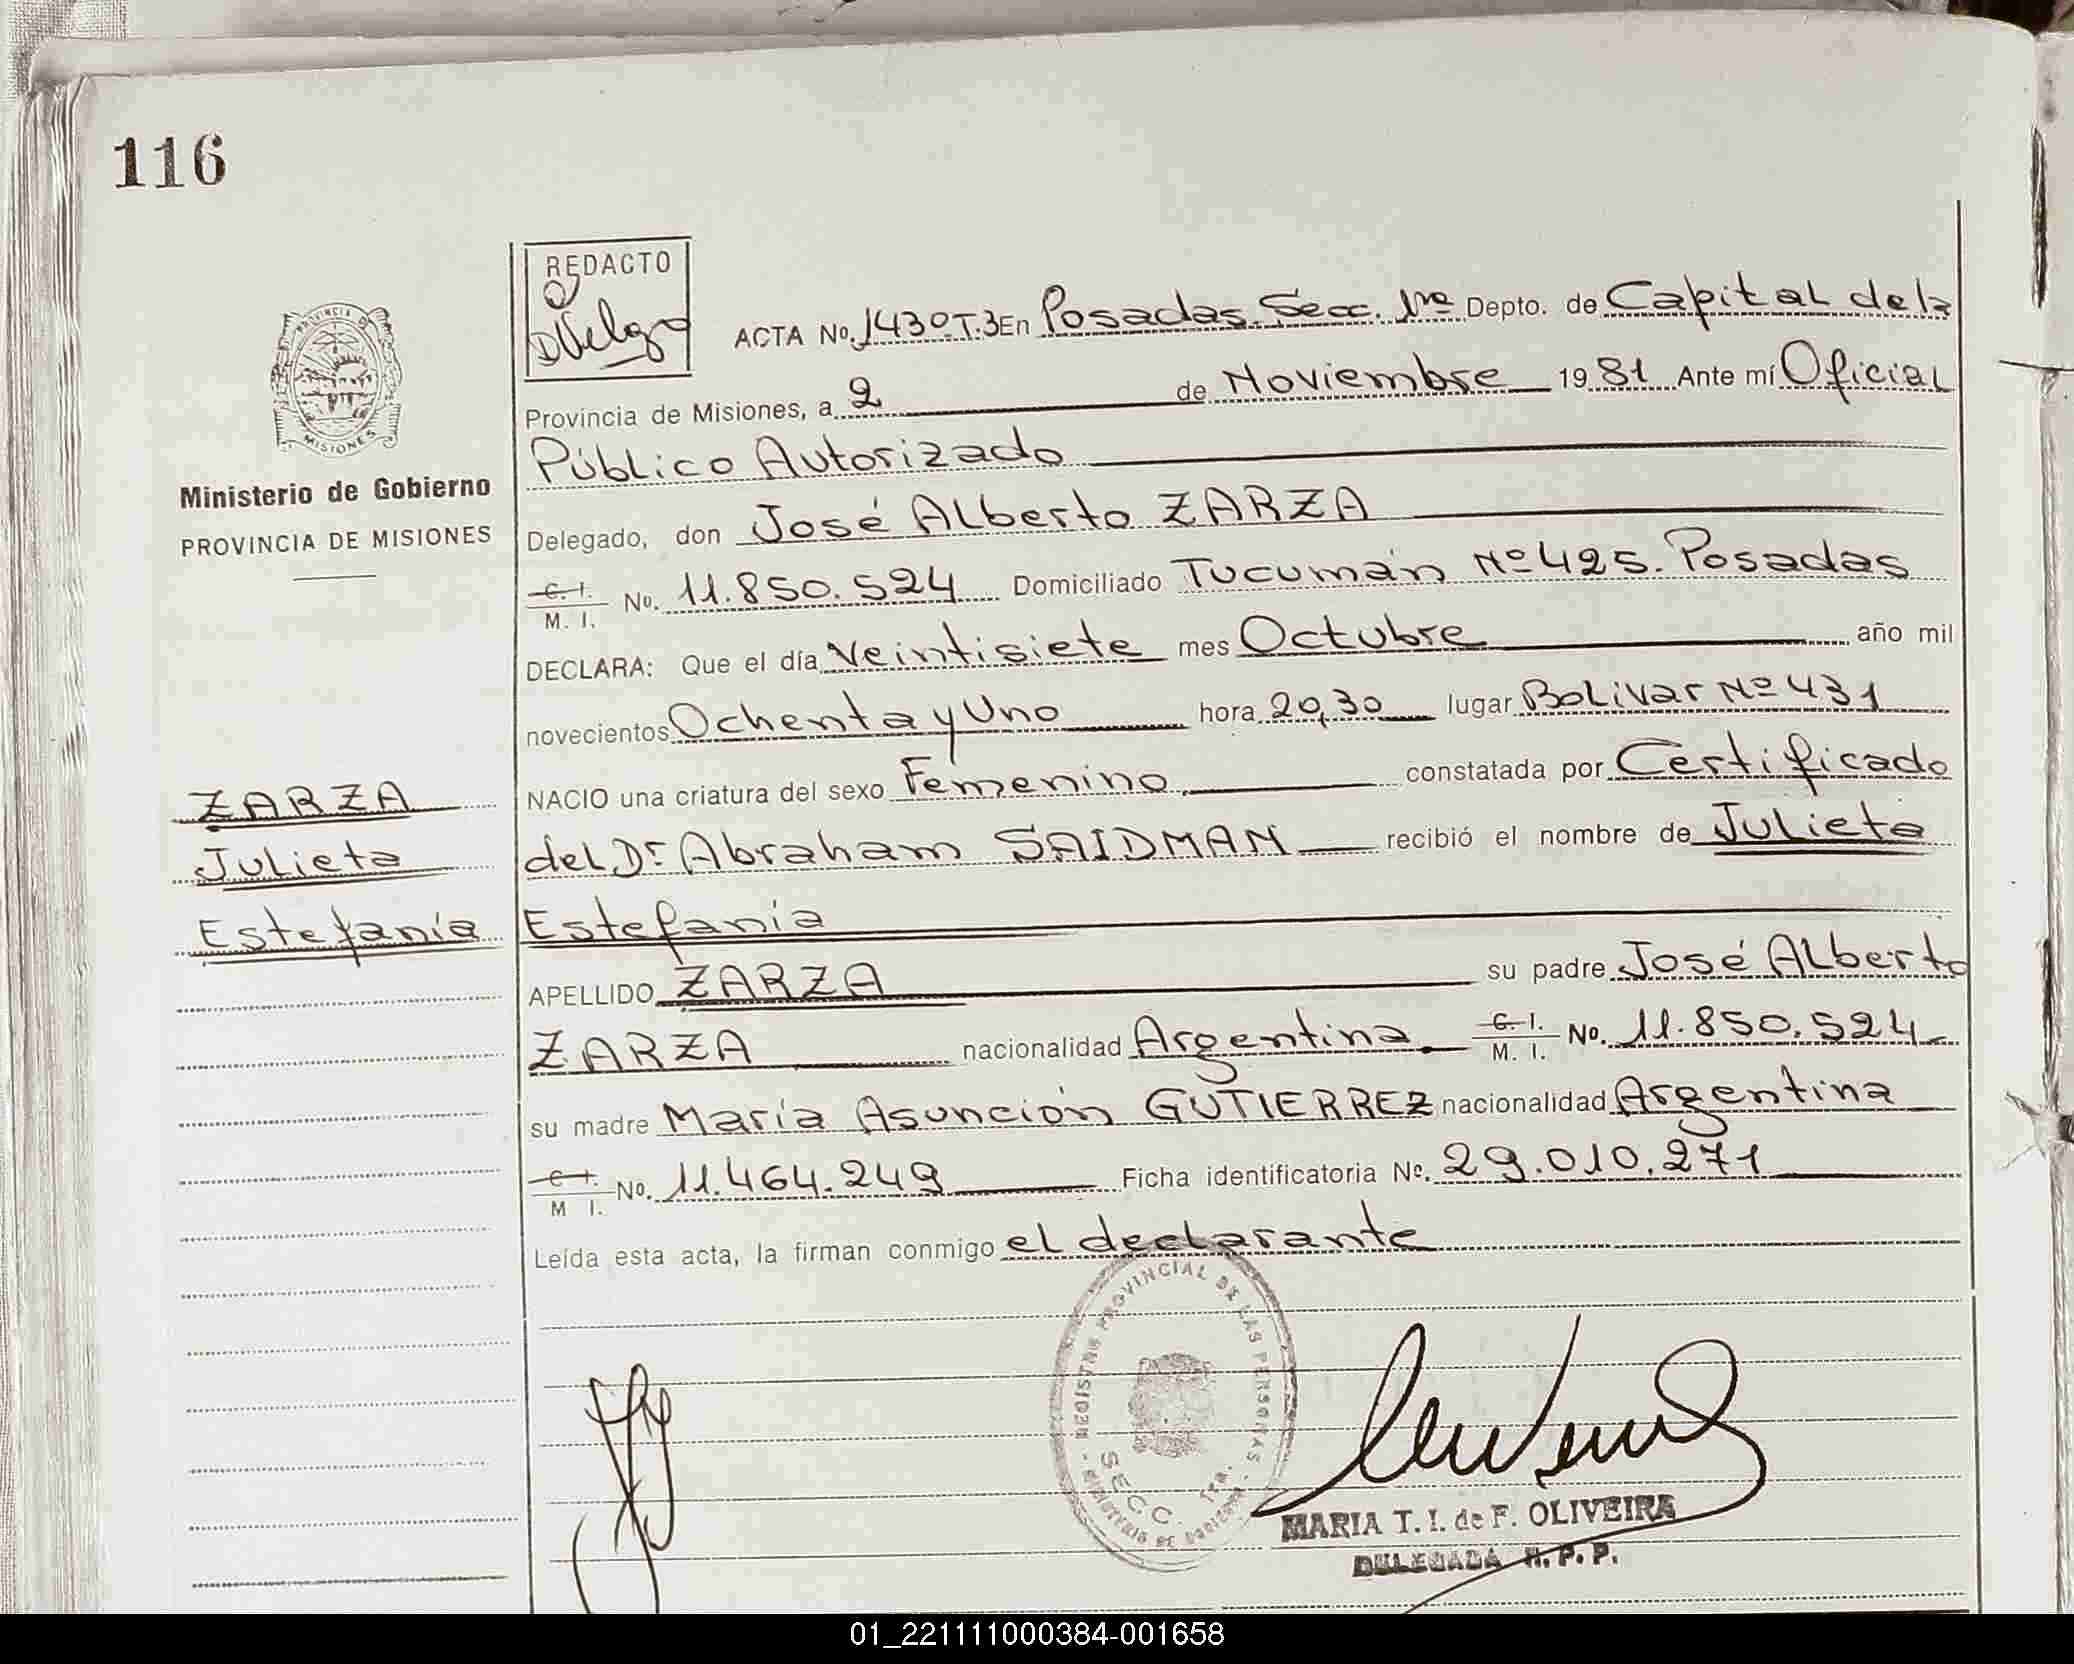 116
REDACTO
ACTA No. 1430 T.3 En Posadas Secc. 1ra Depto. de Capital dela
Provincia de Misiones, a 2 de Noviembre 1981 Ante mí Oficial
Público Autorizado
Delegado, don José Alberto ZARZA
C. I.
M. I. No. 11.850.524 Domiciliado Tucumán Nº 425. Posadas
DECLARA: Que el día Veintisiete mes Octubre año mil
novecientos Ochenta y Uno hora 20,30 lugar Bolivar Nº 431
NACIO una criatura del sexo Femenino constatada por Certificado
del Dr. Abraham SAIDMAN recibió el nombre de Julieta
Estefanía
APELLIDO ZARZA su padre José Alberto
ZARZA nacionalidad Argentina C. I.
M. I. No. 11.850.524
su madre María Asunción GUTIERREZ nacionalidad Argentina
C. I.
M. I. No. 11.464.249 Ficha identificatoria Nº. 29.010.271
Leída esta acta, la firman conmigo el declarante
PROVINCIA DE
MISIONES
Ministerio de Gobierno
PROVINCIA DE MISIONES
ZARZA
Julieta
Estefanía
REGISTRO PROVINCIAL DE LAS PERSONAS
SECC. 1ra.
MINISTERIO DE GOBIERNO
MARIA T. I. de F. OLIVEIRA
DELEGADA R. P. P.
01_221111000384-001658